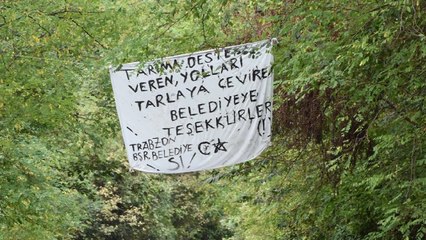 TARIMA, DESTEK
VEREN, YOLLARI
TARLAYA ÇEVİREN
BELEDİYEYE
TEŞEKKÜRLER
(!)
TRABZON
BŞR. BELEDİYE
Sİ